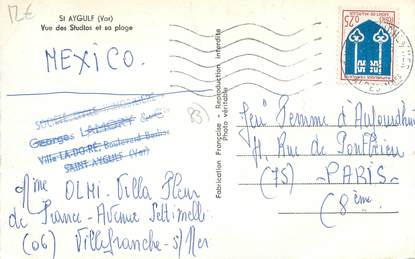 St AYGULF (Var)
Vue des Studios et sa plage
MEXICO.
Georges LALIGRY
Villa LA DO RÉ Boulevard
SAINT-AYGULF (Var)
Mme OLMI - Villa Fleur
de France - Avenue Settimelli
(06) Villefranche-s/Mer
Fabrication Française - Reproduction interdite
Photo véritable
0,25
Jeu Femme d'Aujourd'hui
11, Rue de Ponthieu
(75) - PARIS -
(8ème)